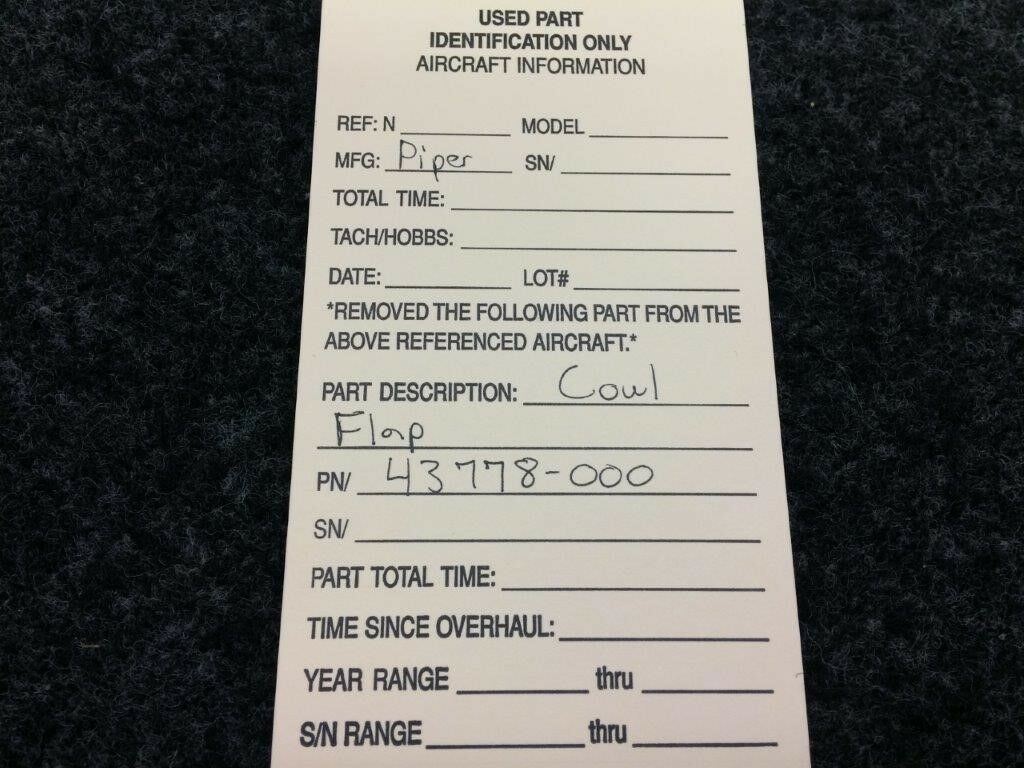 USED PART
IDENTIFICATION ONLY
AIRCRAFT INFORMATION
REF: N MODEL
MFG: Piper SN/
TOTAL TIME:
TACH/HOBBS:
DATE: LOT#
*REMOVED THE FOLLOWING PART FROM THE
ABOVE REFERENCED AIRCRAFT.*
PART DESCRIPTION: Cowl
Flap
PN/ 43778-000
SN/
PART TOTAL TIME:
TIME SINCE OVERHAUL:
YEAR RANGE thru
S/N RANGE thru